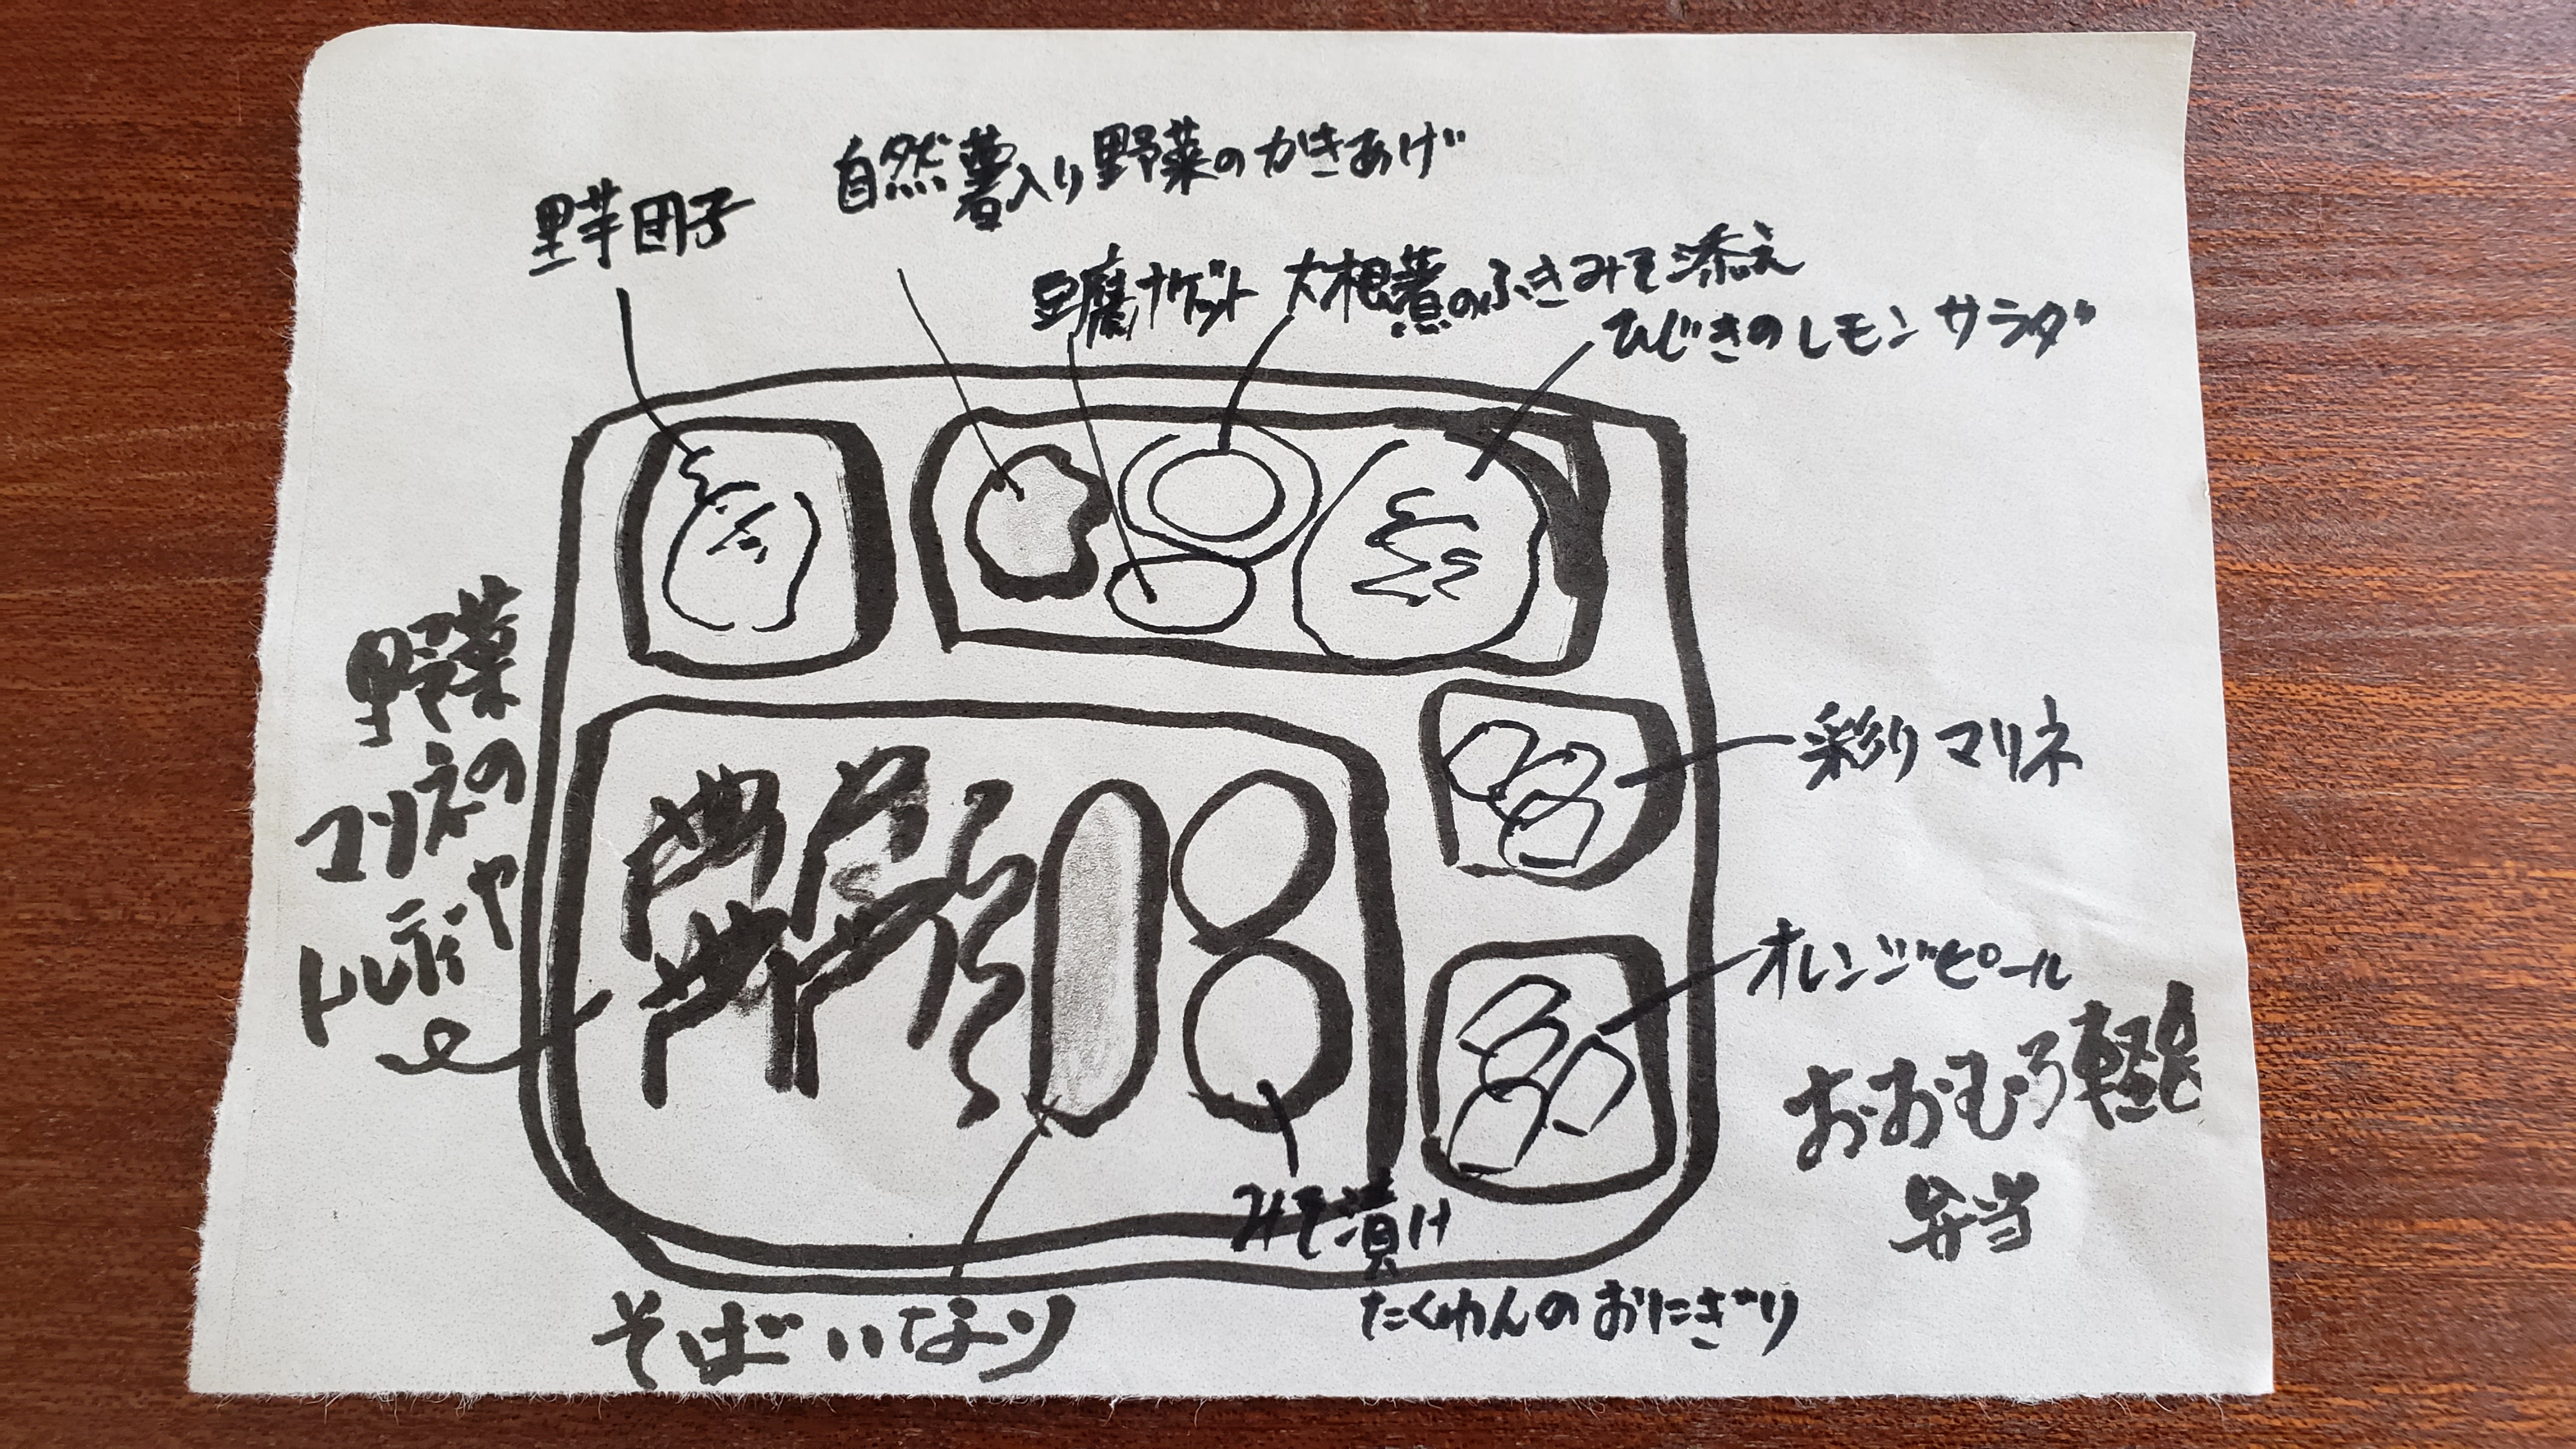 自然薯入り野菜のかきあげ
里芋団子
豆腐ナゲット
大根煮のふきみそ添え
ひじきのレモンサラダ
野菜
マリネの
トルティヤ
彩りマリネ
オレンジピール
おおむろ軽食
弁当
みそ漬け
たくわんのおにぎり
そばいなり